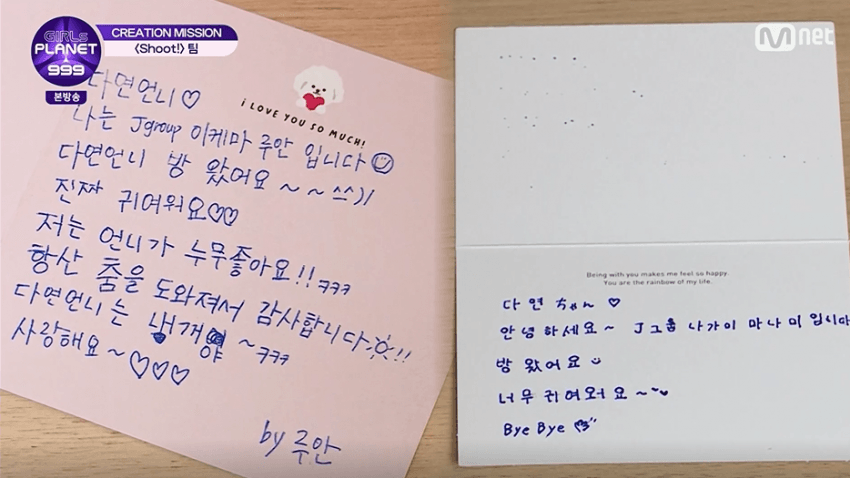 GIRLs
PLANET
999
본방송
CREATION MISSION
<Shoot!> 팀
Mnet
I LOVE YOU SO MUCH!
다연언니♡
나는 Jgroup 이케마 루안 입니다
다연언니 방 왔어요 ~ ~ ^^))
진짜 귀여워요♡♡
저는 언니가 누무좋아요!! ㅋㅋㅋ
항산 춤을 도와져서 감사합니다!!
다연언니는 냉개양 ~ ㅋㅋㅋ
사랑해요~♡♡♡
by 루안
Being with you makes me feel so happy.
You are the rainbow of my life.
다연ちゃん ♡
안녕하세요~ J그룹 나가이 마나미 입니다
방 왔어요
너무 귀여워요 ~
Bye Bye